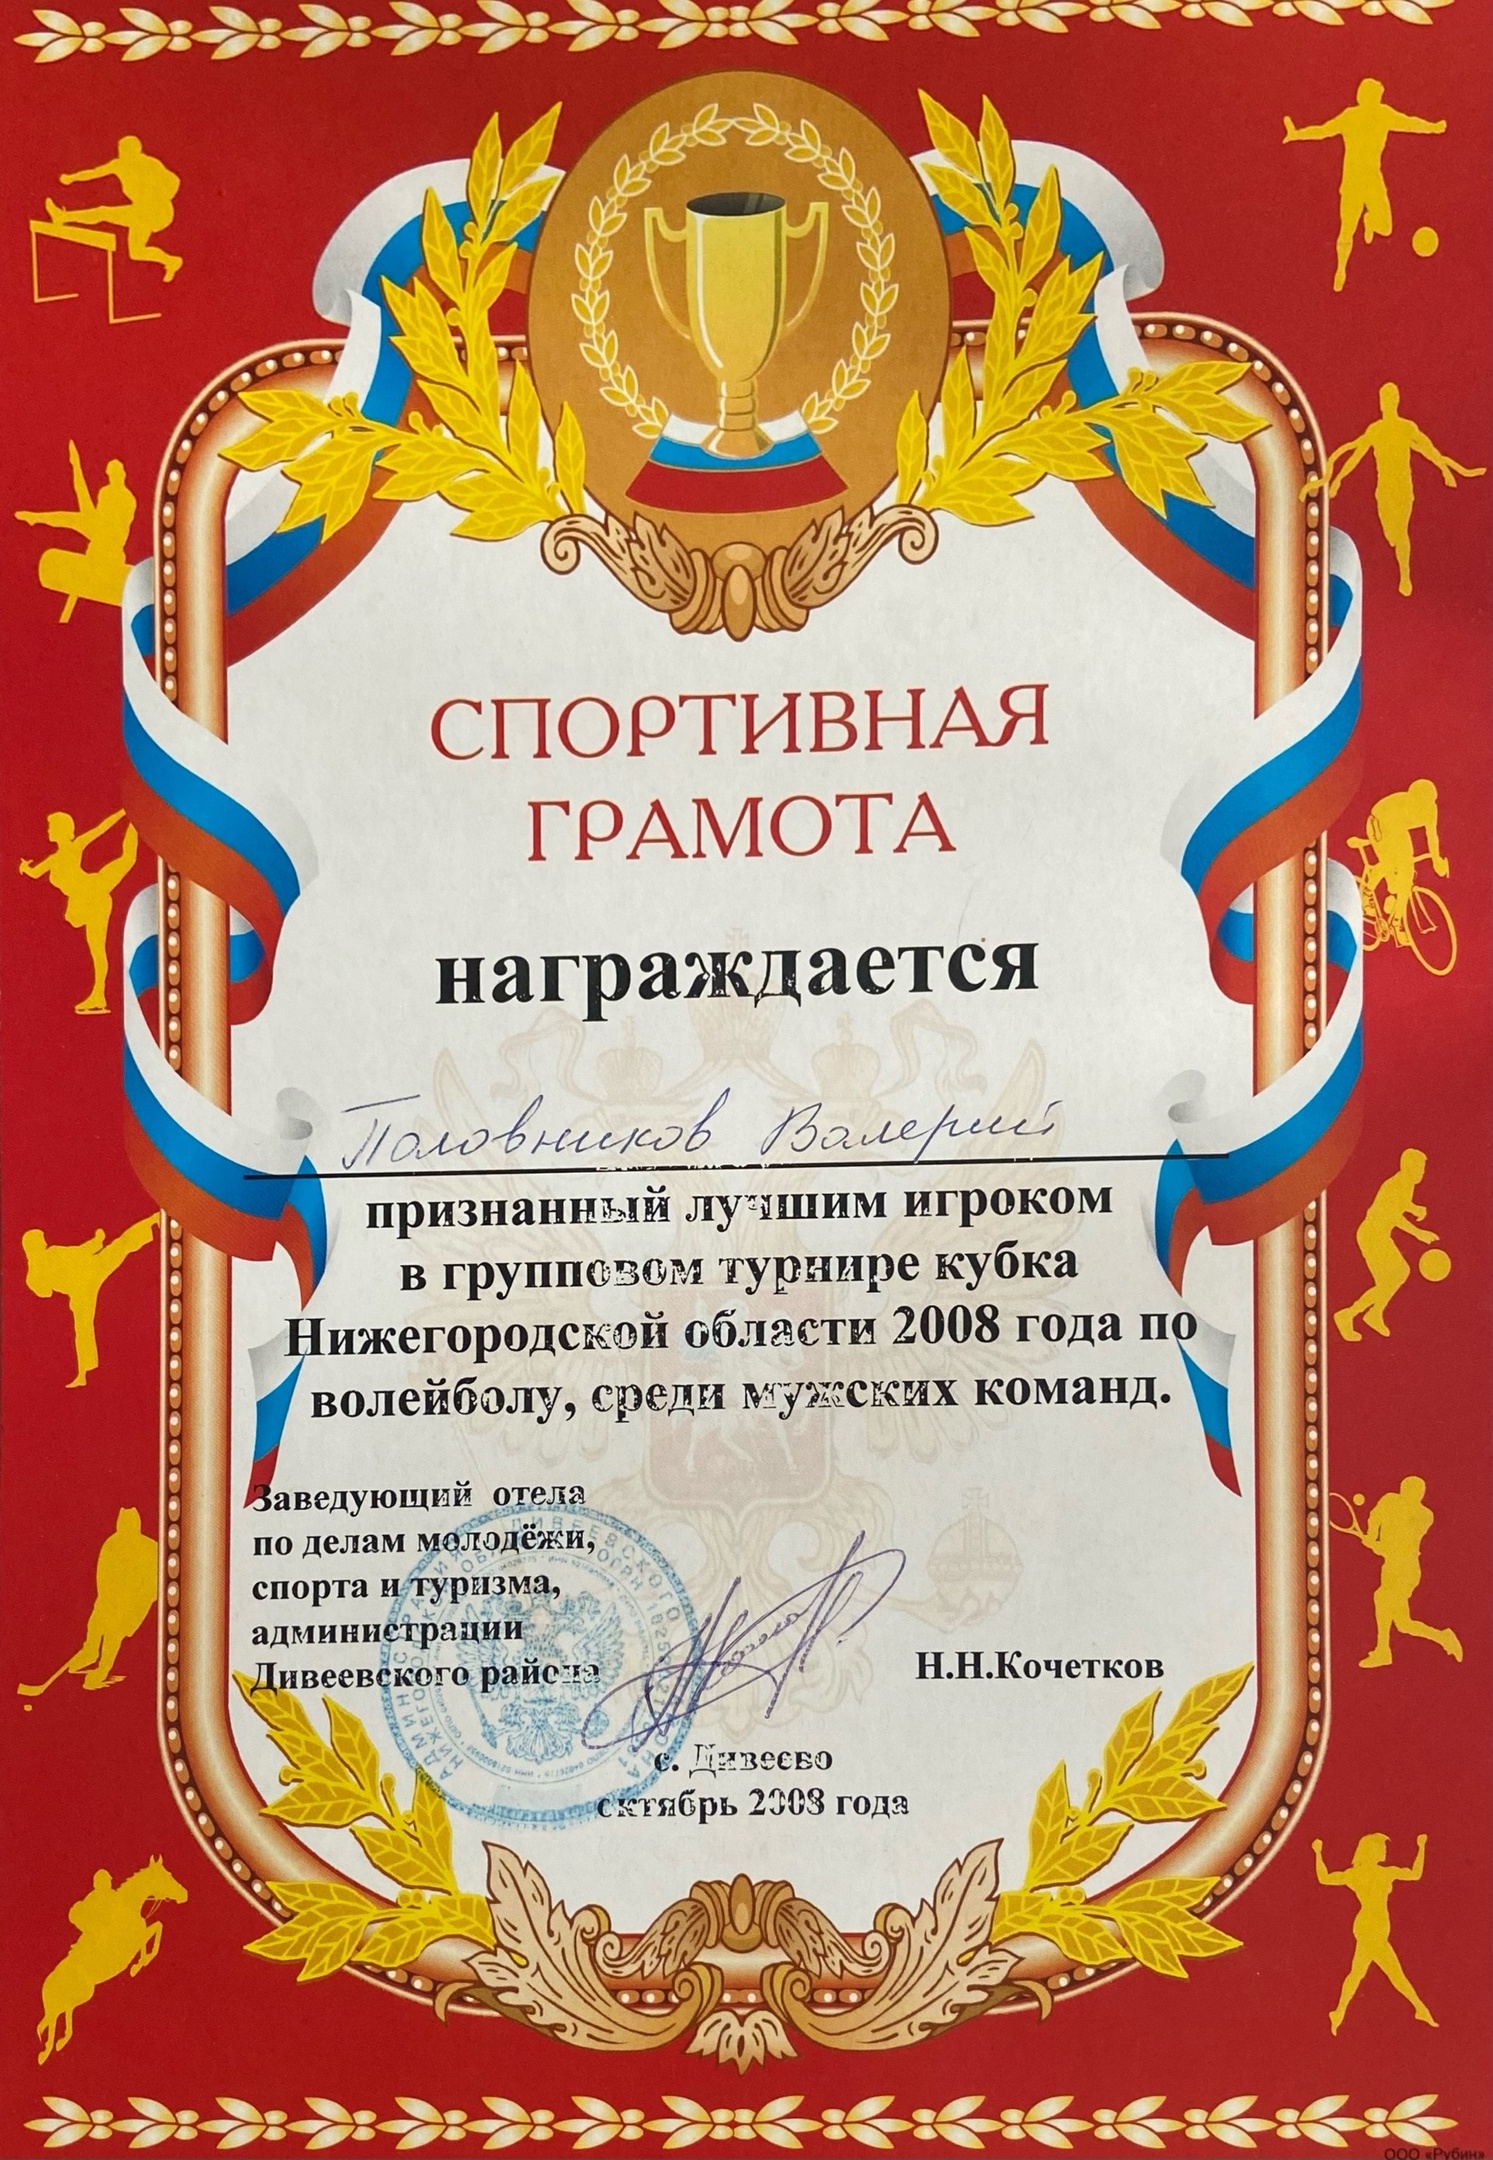 СПОРТИВНАЯ
ГРАМОТА
награждается
Половников Валерий
признанный лучшим игроком
в групповом турнире кубка
Нижегородской области 2008 года по
волейболу, среди мужских команд.
Заведующий отела
по делам молодёжи,
спорта и туризма,
администрации
Дивеевского района
Н.Н.Кочетков
с. Дивеево
октябрь 2008 года
ООО «Рубин»